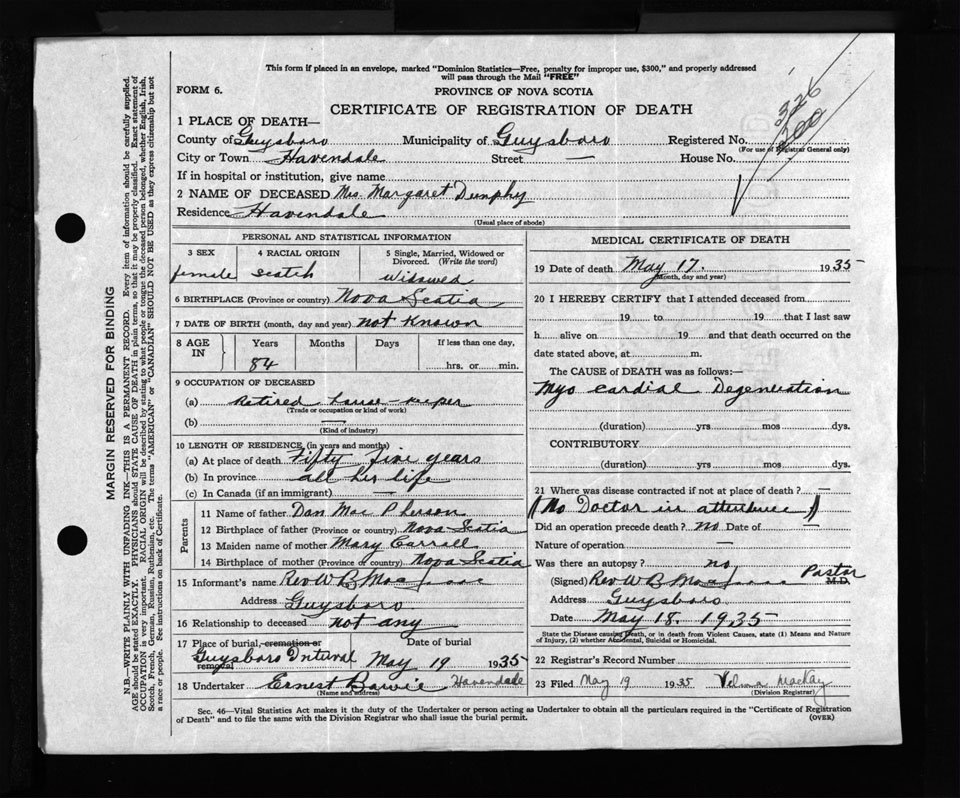 This form if placed in an envelope, marked "Dominion Statistics—Free, penalty for improper use, $300," and properly addressed
will pass through the Mail "FREE"
FORM 6.
PROVINCE OF NOVA SCOTIA
CERTIFICATE OF REGISTRATION OF DEATH
326
200
1 PLACE OF DEATH—
County of Guysboro Municipality of Guysboro Registered No.
(For use of Registrar General only)
City or Town Havendale Street — House No.
If in hospital or institution, give name
2 NAME OF DECEASED Mrs. Margaret Dunphy
Residence Havendale
(Usual place of abode)
PERSONAL AND STATISTICAL INFORMATION
3 SEX 4 RACIAL ORIGIN 5 Single, Married, Widowed or Divorced. (Write the word)
female Scotch Widowed
6 BIRTHPLACE (Province or country) Nova Scotia
7 DATE OF BIRTH (month, day and year) not known
8 AGE IN Years Months Days If less than one day,
84 hrs. or min.
9 OCCUPATION OF DECEASED
(a) Retired house keeper
(Trade or occupation or kind of work)
(b) —
(Kind of industry)
10 LENGTH OF RESIDENCE (in years and months)
(a) At place of death Fifty five years
(b) In province all her life
(c) In Canada (if an immigrant) —
Parents
11 Name of father Dan Mac Pherson
12 Birthplace of father (Province or country) Nova Scotia
13 Maiden name of mother Mary Carroll
14 Birthplace of mother (Province or country) Nova Scotia
15 Informant's name Rev W B
Address Guysboro
16 Relationship to deceased not any
17 Place of burial, cremation or removal Date of burial
Guysboro Interval May 19 1935
18 Undertaker Ernest Havendale
(Name and address)
MEDICAL CERTIFICATE OF DEATH
19 Date of death May 17. 1935
(Month, day and year)
20 I HEREBY CERTIFY that I attended deceased from
19 to 19 that I last saw
h alive on 19 and that death occurred on the
date stated above, at m.
The CAUSE of DEATH was as follows:—
Myo cardial Degeneration
(duration) yrs mos dys.
CONTRIBUTORY
(duration) yrs mos dys.
21 Where was disease contracted if not at place of death? —
(No Doctor in attendance)
Did an operation precede death? no Date of —
Nature of operation —
Was there an autopsy? no
(Signed) Rev W B Pastor M.D.
Address Guysboro
Date May 18. 1935
State the Disease causing Death, or in death from Violent Causes, state (1) Means and Nature
of Injury, (2) whether Accidental, Suicidal or Homicidal.
22 Registrar's Record Number
23 Filed May 19 1935 MacKay
(Division Registrar)
Sec. 46—Vital Statistics Act makes it the duty of the Undertaker or person acting as Undertaker to obtain all the particulars required in the "Certificate of Registration
of Death" and to file the same with the Division Registrar who shall issue the burial permit. (OVER)
MARGIN RESERVED FOR BINDING
N.B.—WRITE PLAINLY WITH UNFADING INK—THIS IS A PERMANENT RECORD. Every item of information should be carefully supplied.
AGE should be stated EXACTLY. PHYSICIANS should STATE CAUSE OF DEATH in plain terms, so that it may be properly classified. Exact statement of
OCCUPATION is very important. RACIAL ORIGIN will be described by stating to what people or tongue the deceased person belonged, whether English, Irish,
Scotch, French, German, Russian, Ruthenian, etc. The terms "AMERICAN" or "CANADIAN" SHOULD NOT BE USED as they express citizenship but not
a race or people. See instructions on back of Certificate.